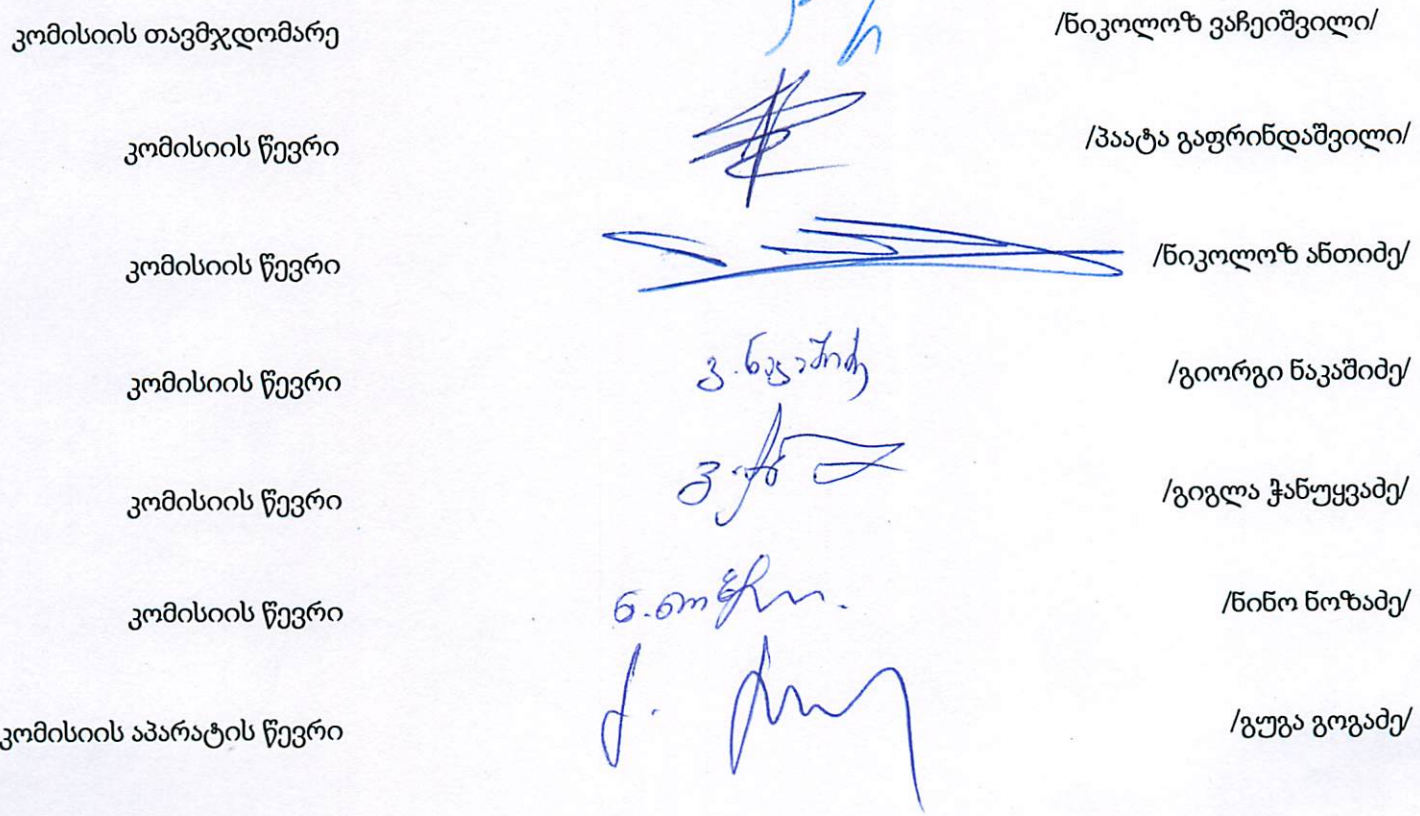 კომისიის თავმჯდომარე /ნიკოლოზ ვაჩეიშვილი/
კომისიის წევრი /პაატა გაფრინდაშვილი/
კომისიის წევრი /ნიკოლოზ ანთიძე/
კომისიის წევრი გ. ნაკაშიძე /გიორგი ნაკაშიძე/
კომისიის წევრი /გიგლა ჭანუყვაძე/
კომისიის წევრი /ნინო ნოზაძე/
კომისიის აპარატის წევრი /გუგა გოგაძე/